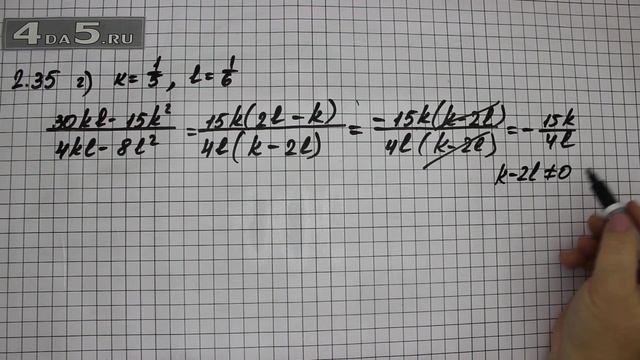 4DA5.RU
2.35 г) k = 1/5 , l = 1/6
(30kl - 15k²)/(4kl - 8l²) = 15k(2l - k)/4l(k - 2l) = -15k(k-2l)/4l(k-2l) = - 15k/4l
k-2l ≠ 0